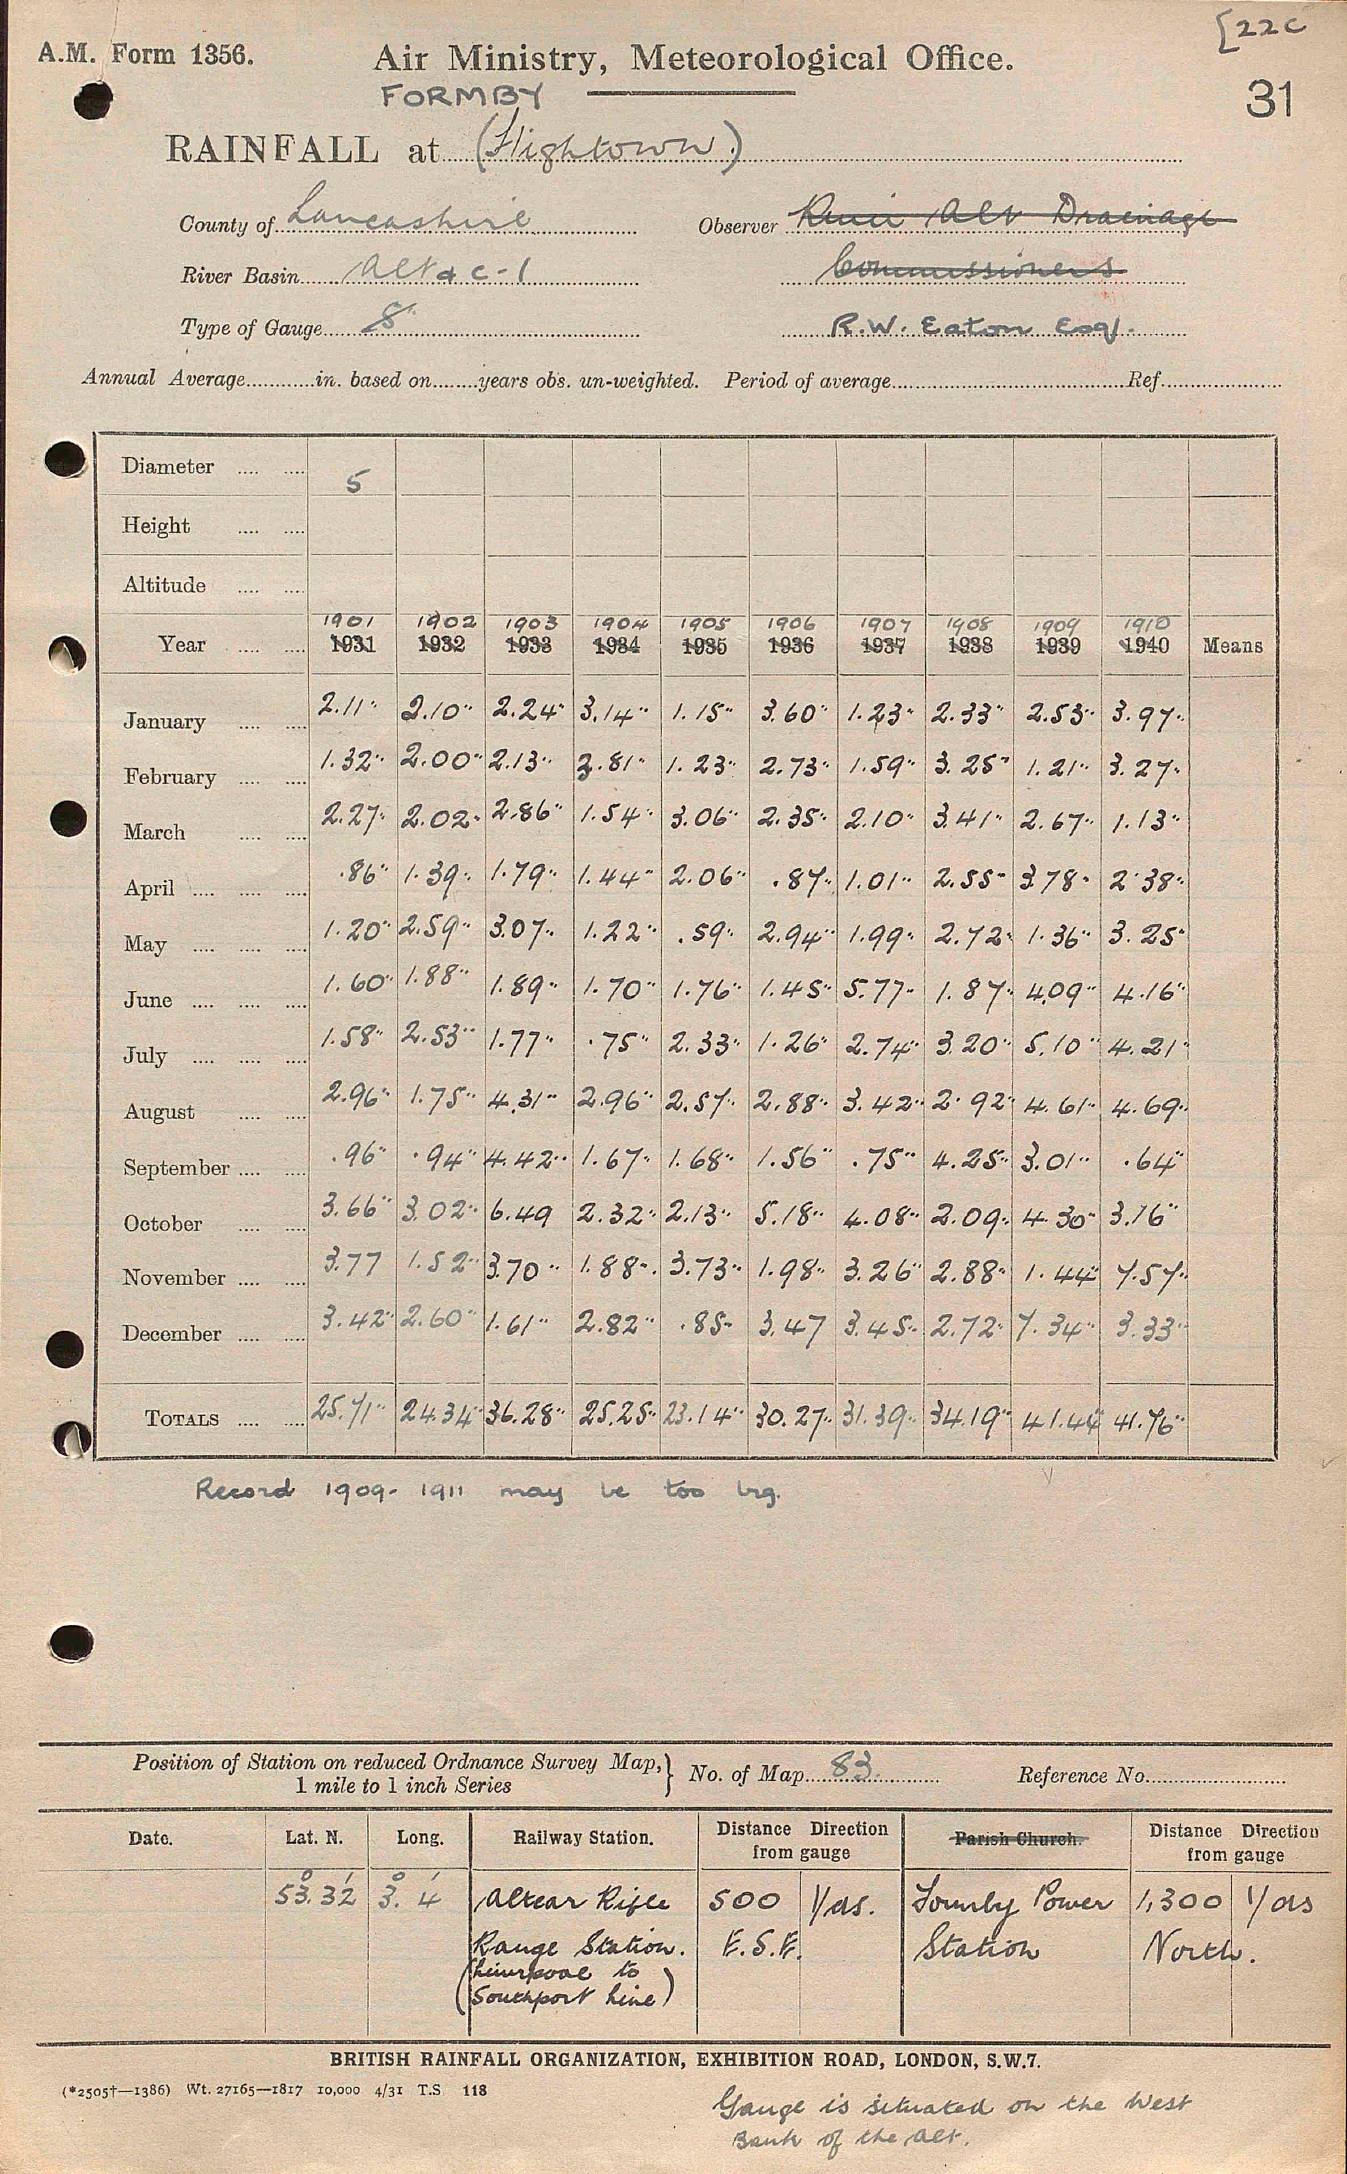 [22c
A.M. Form 1356.
Air Ministry, Meteorological Office.
31
FORMBY
RAINFALL at (Hightown)
County of Lancashire Observer River Alt Drainage
River Basin Alt & C-1 Commissioners
Type of Gauge 8" R.W. Eaton Esq.
Annual Average............in. based on........years obs. un-weighted. Period of average.......................Ref...............
Diameter .... .... 5
Height .... ....
Altitude .... ....
1901 1902 1903 1904 1905 1906 1907 1908 1909 1910
Year .... .... 1931 1932 1933 1934 1935 1936 1937 1938 1939 1940 Means
January .... .... 2.11" 2.10" 2.24" 3.14" 1.15" 3.60" 1.23" 2.33" 2.53" 3.97"
February .... .... 1.32" 2.00" 2.13" 2.81" 1.23" 2.73" 1.59" 3.25" 1.21" 3.27"
March .... .... 2.27" 2.02" 2.86" 1.54" 3.06" 2.35" 2.10" 3.41" 2.67" 1.13"
April .... .... .... .86" 1.39" 1.79" 1.44" 2.06" .87" 1.01" 2.55" 3.78" 2.38"
May .... .... .... 1.20" 2.59" 3.07" 1.22" .59" 2.94" 1.99" 2.72" 1.36" 3.25"
June .... .... .... 1.60" 1.88" 1.89" 1.70" 1.76" 1.45" 5.77" 1.87" 4.09" 4.16"
July .... .... .... 1.58" 2.53" 1.77" .75" 2.33" 1.26" 2.74" 3.20" 5.10" 4.21"
August .... .... 2.96" 1.75" 4.31" 2.96" 2.57" 2.88" 3.42" 2.92" 4.61" 4.69"
September .... .... .96" .94" 4.42" 1.67" 1.68" 1.56" .75" 4.25" 3.01" .64"
October .... .... 3.66" 3.02" 6.49 2.32" 2.13" 5.18" 4.08" 2.09" 4.30" 3.16"
November .... .... 3.77 1.52" 3.70" 1.88" 3.73" 1.98" 3.26" 2.88" 1.44" 7.57"
December .... .... 3.42" 2.60" 1.61" 2.82" .85" 3.47 3.45" 2.72" 7.34" 3.33"
TOTALS .... .... 25.71" 24.34" 36.28" 25.25" 23.14" 30.27" 31.39" 34.19" 41.44" 41.76"
Record 1909-1911 may be too lrg.
Position of Station on reduced Ordnance Survey Map,
1 mile to 1 inch Series } No. of Map 83 Reference No.
Date. Lat. N. Long. Railway Station. Distance Direction from gauge Parish Church. Distance Direction from gauge
53° 32' 3° 4' Altcar Rifle 500 Yds. Formby Power 1,300 Yds
Range Station. E.S.E. Station North.
(Liverpool to
Southport Line)
BRITISH RAINFALL ORGANIZATION, EXHIBITION ROAD, LONDON, S.W.7.
(*2505†—1386) Wt. 27165—1817 10,000 4/31 T.S. 118
Gauge is situated on the West
Bank of the Alt.